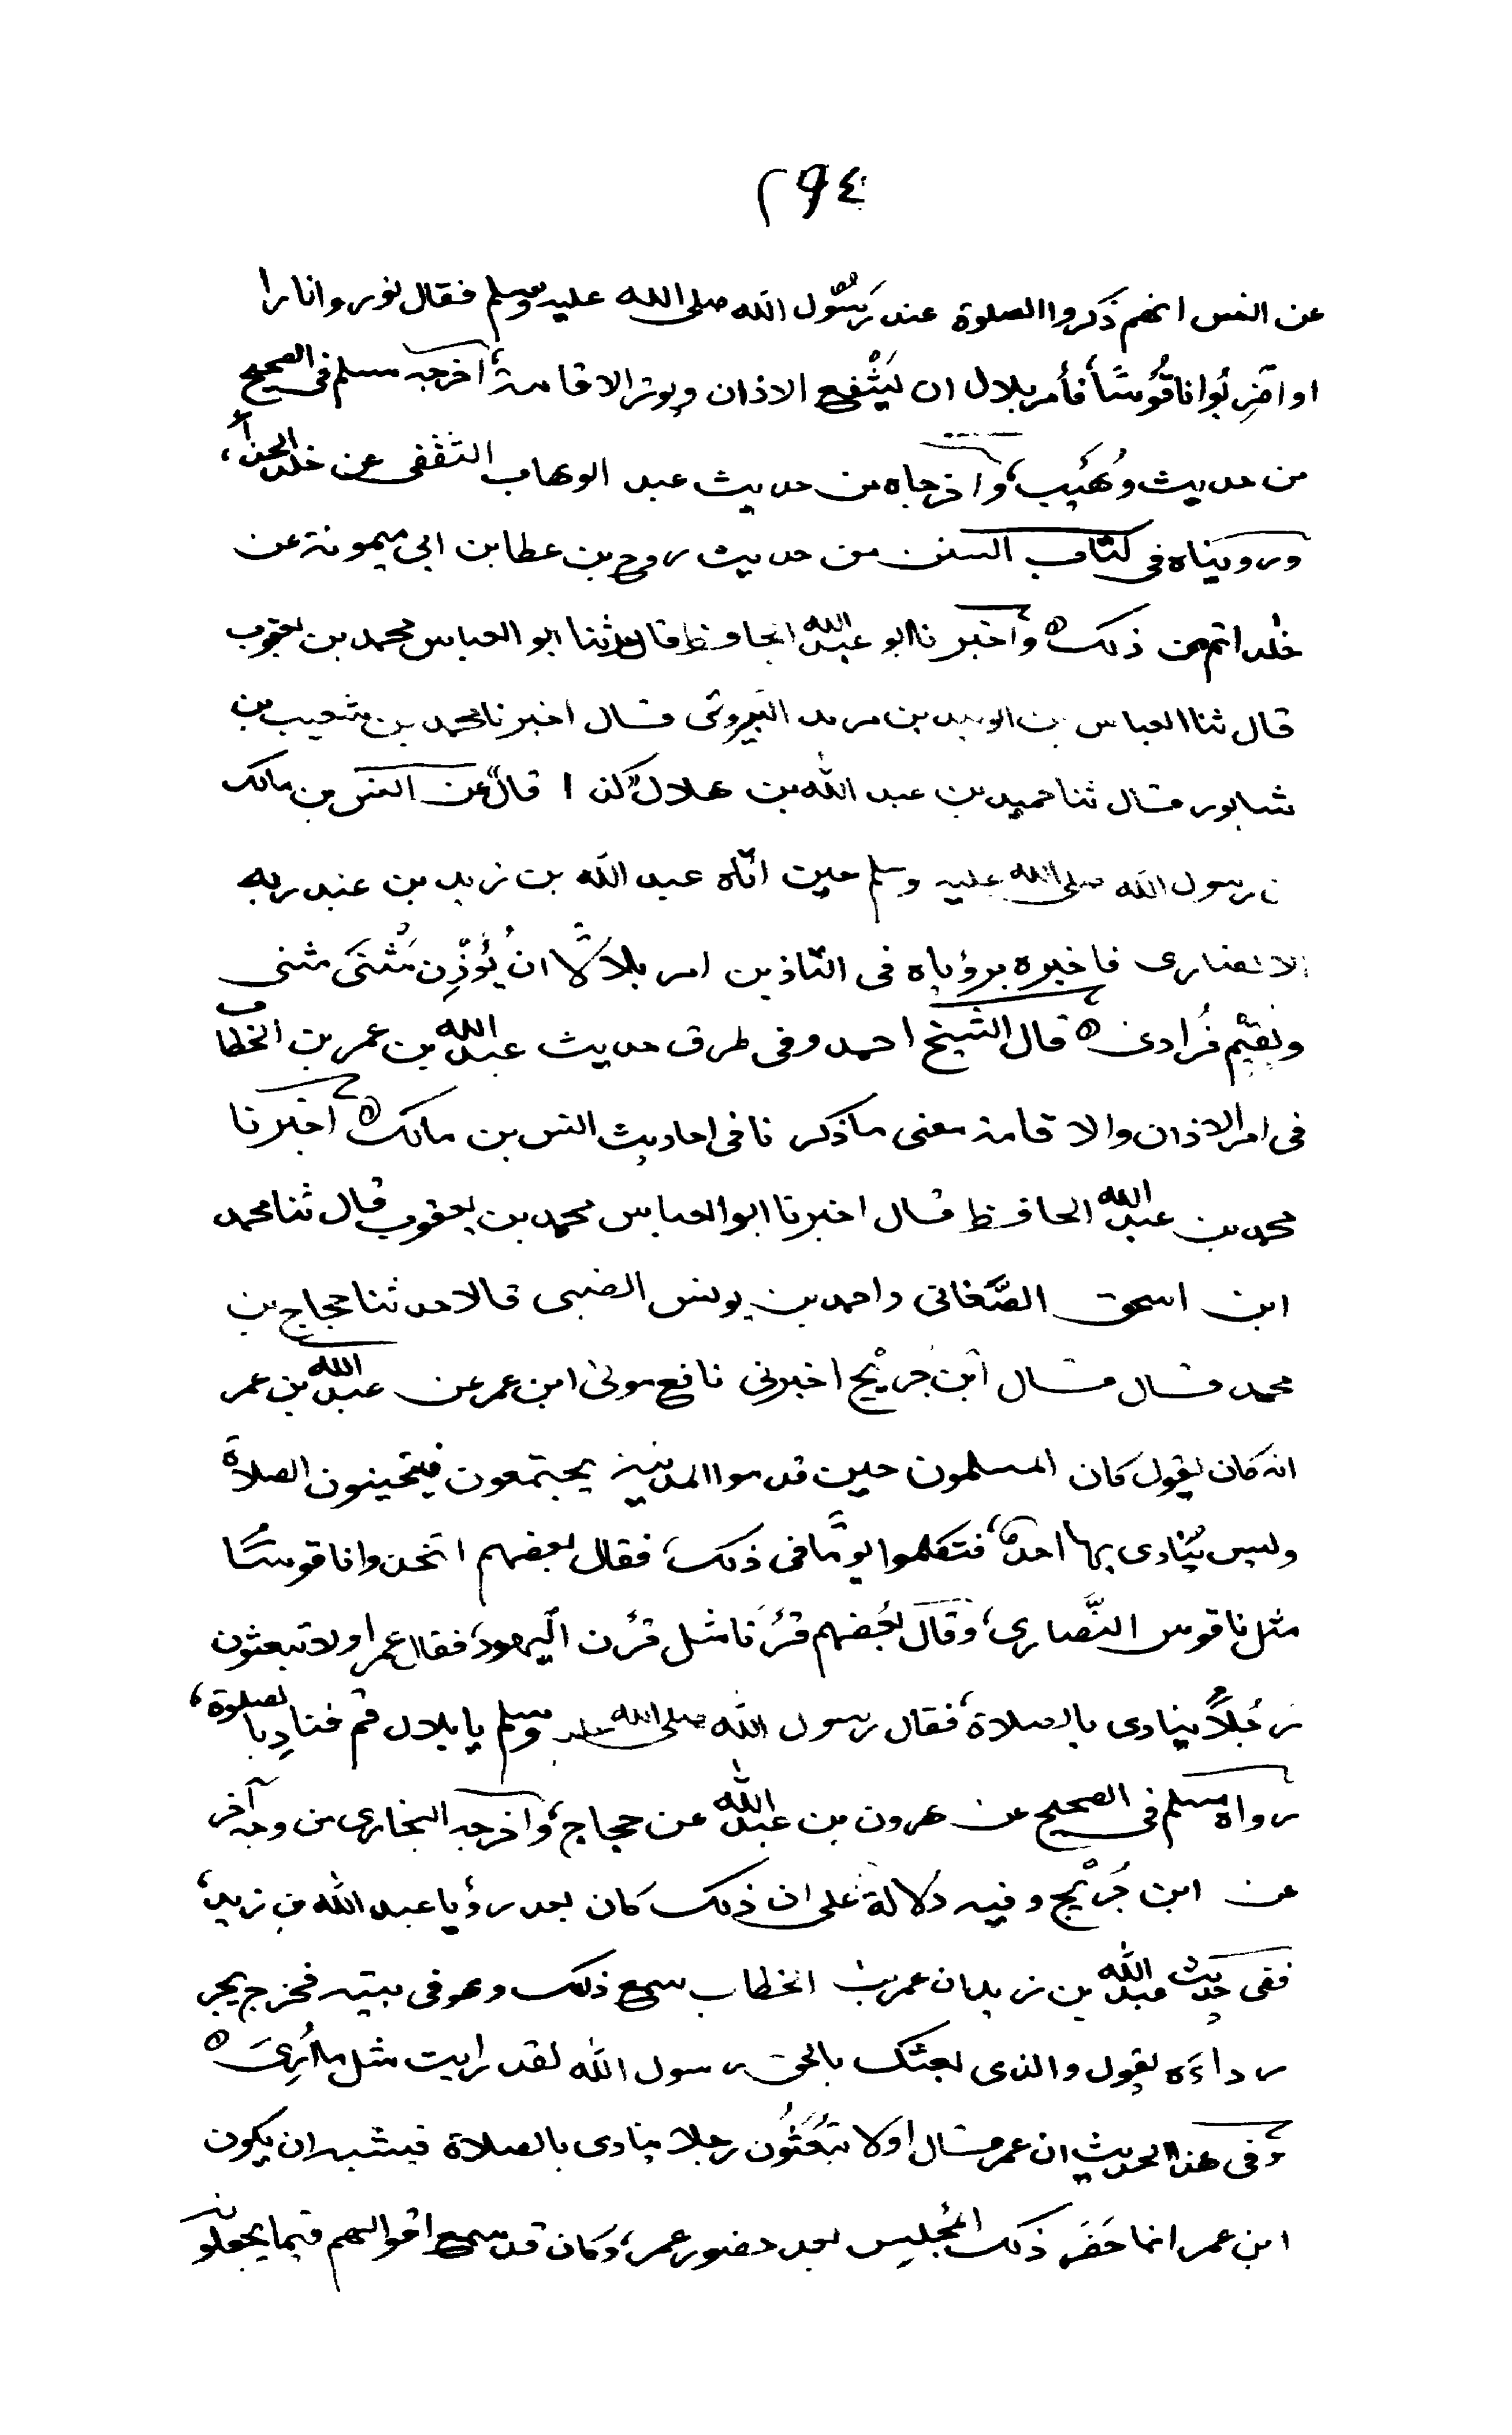 ٢٩٤
عن انس انهم ذكروا الصلوة عند رَسُول الله صلى الله عليه وسلم فقال نوروا نارا
او اضرِبُوا ناقُوسًا فأمر بلال ان يَشْفع الاذان ويوتر الاقامة، اخرجه مسلم فى الصحيح
من حديث وُهَيب، واخرجاه من حديث عبد الوهاب الثقفى عن خلد الحذأ،
ورويناه فى كتاب السنن من حديث روح بن عطا بن ابى ميمونة عن
خلد اتم من ذلك ه واخبرنا ابو عبد الله الحافظ قال حدثنا ابو العباس محمد بن يعقوب
قال ثنا العباس بن الوليد بن مزيد البيروتى قال اخبرنا محمد بن شعيب بن
شابور قال ثنا حميد بن عبد الله بن هلال كذا قال عن انس بن مالك
ن رسول الله صلى الله عليه وسلم حين اتاه عبد الله بن زيد بن عبد ربه
الانصارى فاخبره برؤياه فى التاذين امر بلالًا ان يُؤذِّن مَثْنَى مثنى
ويُقيْم فُرادى ه قال الشيخ احمد وفى طرق حديث عبد الله بن عمر بن الخطاب
فى امر الاذان والاقامة معنى ما ذكرنا فى احاديث انس بن مالك ه اخبرنا
محمد بن عبد الله الحافظ قال اخبرنا ابو العباس محمد بن يعقوب قال ثنا محمد
ابن اسحق الصَّغانى واحمد بن يونس الضبى قالا حدثنا حجاج بن
محمد قال قال ابن جُريْج اخبرنى نافع مولى ابن عمر عن عبد الله بن عمر
انه كان يقول كان المسلمون حين قدموا المدينة يجتمعون فيتحينون الصلاة
وليس يُنادى بها احد، فتكلموا يومًا فى ذلك، فقال بعضهم اتخذوا ناقوسًا
مثل ناقوس النَّصارى، وقال بعضهم قرْنا مثل قرْن اليهود، فقال عمر اولا تبعثون
رجُلًا ينادى بالصلاة، فقال رسول الله صلى الله عليه وسلم يا بلال قم فنادِ بالصلوة،
رواه مسلم فى الصحيح عن هرون بن عبد الله عن حجاج، واخرجه البخارى من وجه آخر
عن ابن جُرَيْج وفيه دلالة على ان ذلك كان بعد رؤيا عبد الله بن زيد،
ففى حديث عبد الله بن زيد ان عمر بن الخطاب سمع ذلك وهو فى بيته فخرج يجر
رداءه يقول والذى بعثك بالحق رسول الله لقد رايت مثل ما أُرِىَ ه
وفى هذا الحديث ان عمر قال اولا تبْعَثُون رجلا ينادى بالصلاة فيشبه ان يكون
ابن عمر انما حَضَر ذلك المجْلِس بعد حضور عمر، وكان قد سمع اقوالهم فيما يجعلون